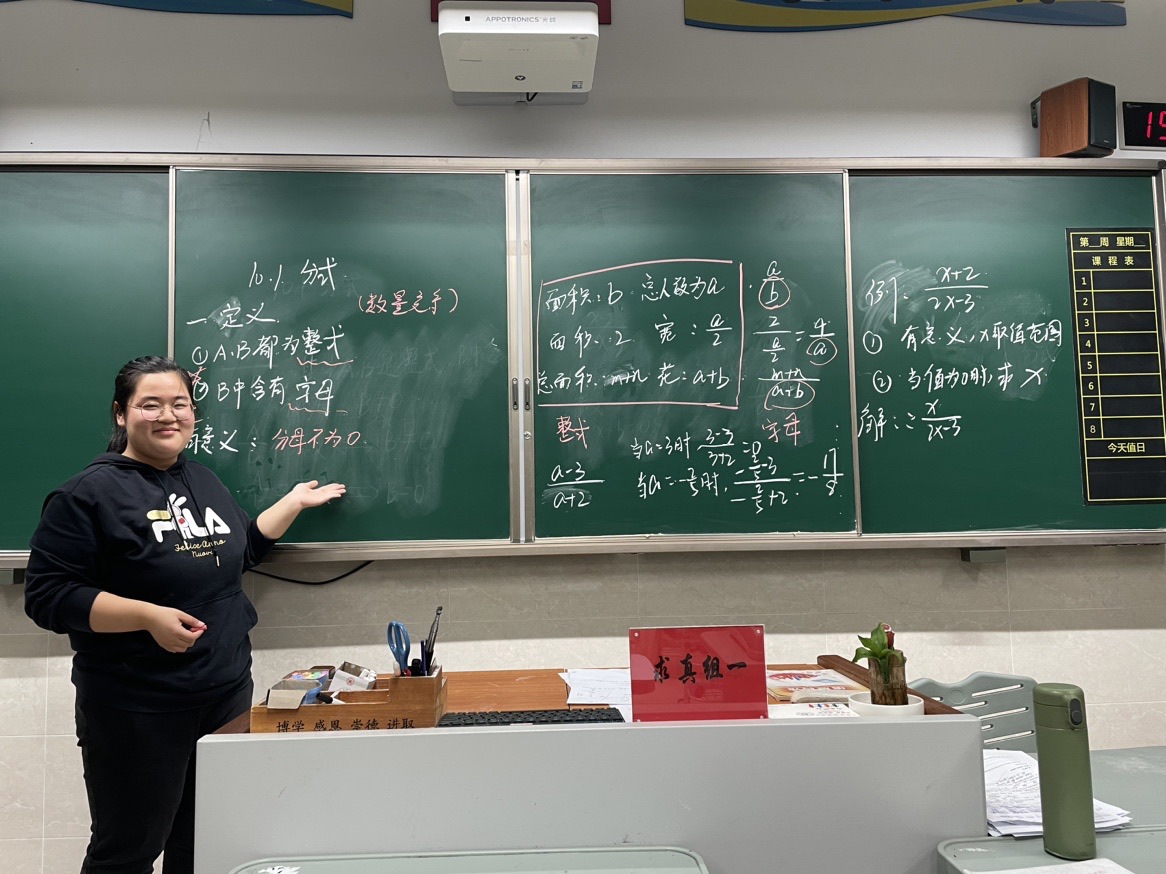 APPOTRONICS 光峰
19
10.1 分式
一. 定义
(数量之手)
① A.B都为整式
② B中含有字母
有意义: 分母不为0
面积: b 总人数为a
面积: 2 宽: a/2
总面积: m+n 花: a+b
a/b
2/(a/2) = 4/a
(m+n)/(a+b)
整式
字母
(a-3)/(a+2)
当a=3时 (3-3)/(3+2)=0
当a=-2/5时, (-2/5-3)/(-2/5+2) = -17/8
例1: (x+2)/(2x-3)
① 有意义, x取值范围
② 当值为0时, 求 x
解: = x/(2x-3)
第 周 星期
课程表
1
2
3
4
5
6
7
8
今天值日
FILA
Felice Anno
Nuovo
博学 感恩 崇德 进取
求真组一